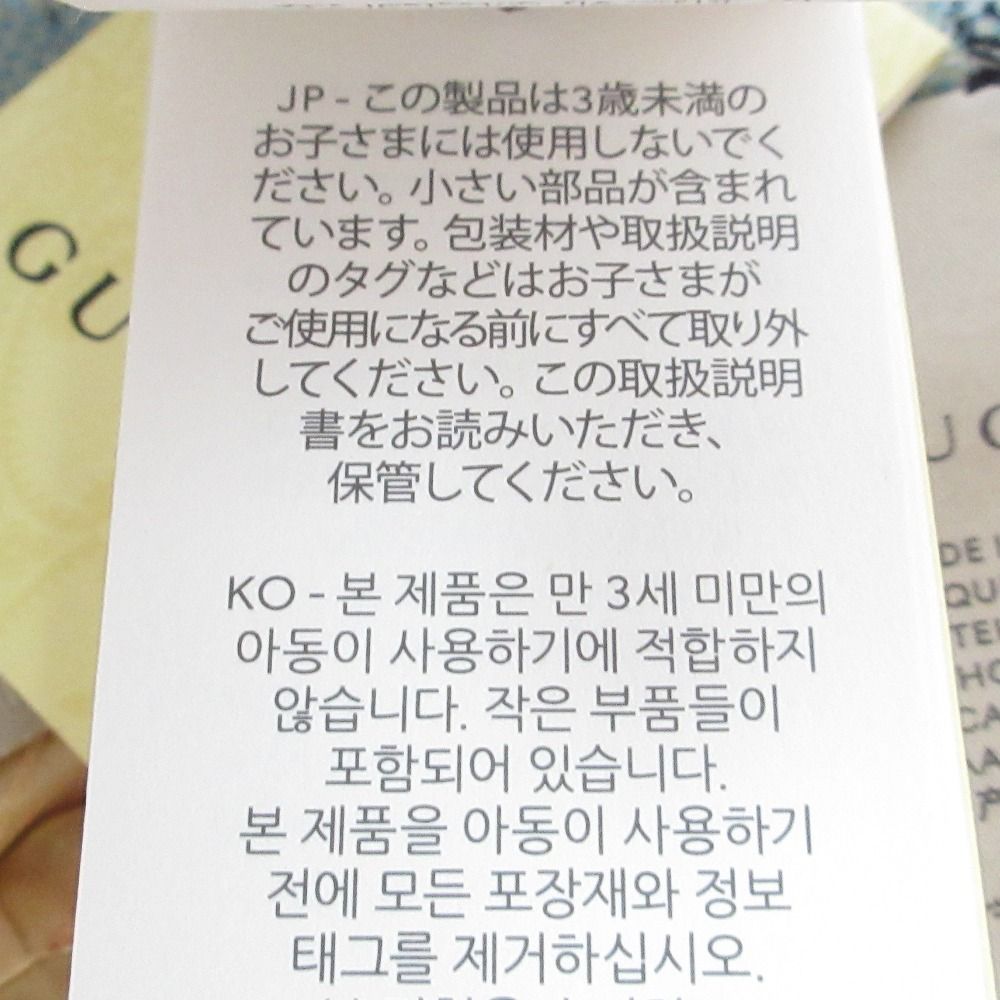 JP - この製品は3歳未満の
お子さまには使用しないでく
ださい。小さい部品が含まれ
ています。包装材や取扱説明
のタグなどはお子さまが
ご使用になる前にすべて取り外
してください。この取扱説明
書をお読みいただき、
保管してください。
KO - 본 제품은 만 3세 미만의
아동이 사용하기에 적합하지
않습니다. 작은 부품들이
포함되어 있습니다.
본 제품을 아동이 사용하기
전에 모든 포장재와 정보
태그를 제거하십시오.
GU